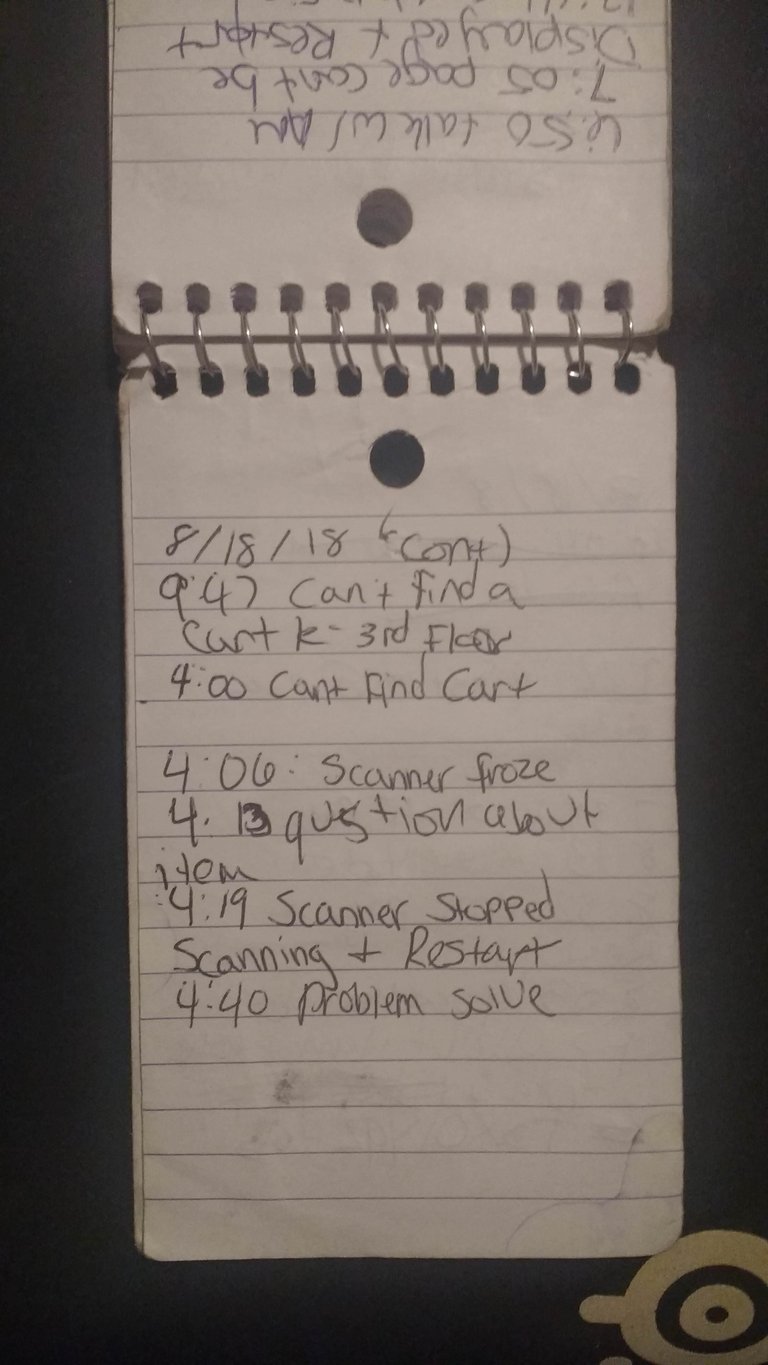 6:50 talk w/ AM
7:05 page cant be
Displayed + Restart
8/18/18 (cont)
9:47 can't find a
Cart k- 3rd Floor
4:00 Cant Find Cart
4:06: Scanner froze
4:13 question about
item
4:19 Scanner Stopped
Scanning + Restart
4:40 problem solve